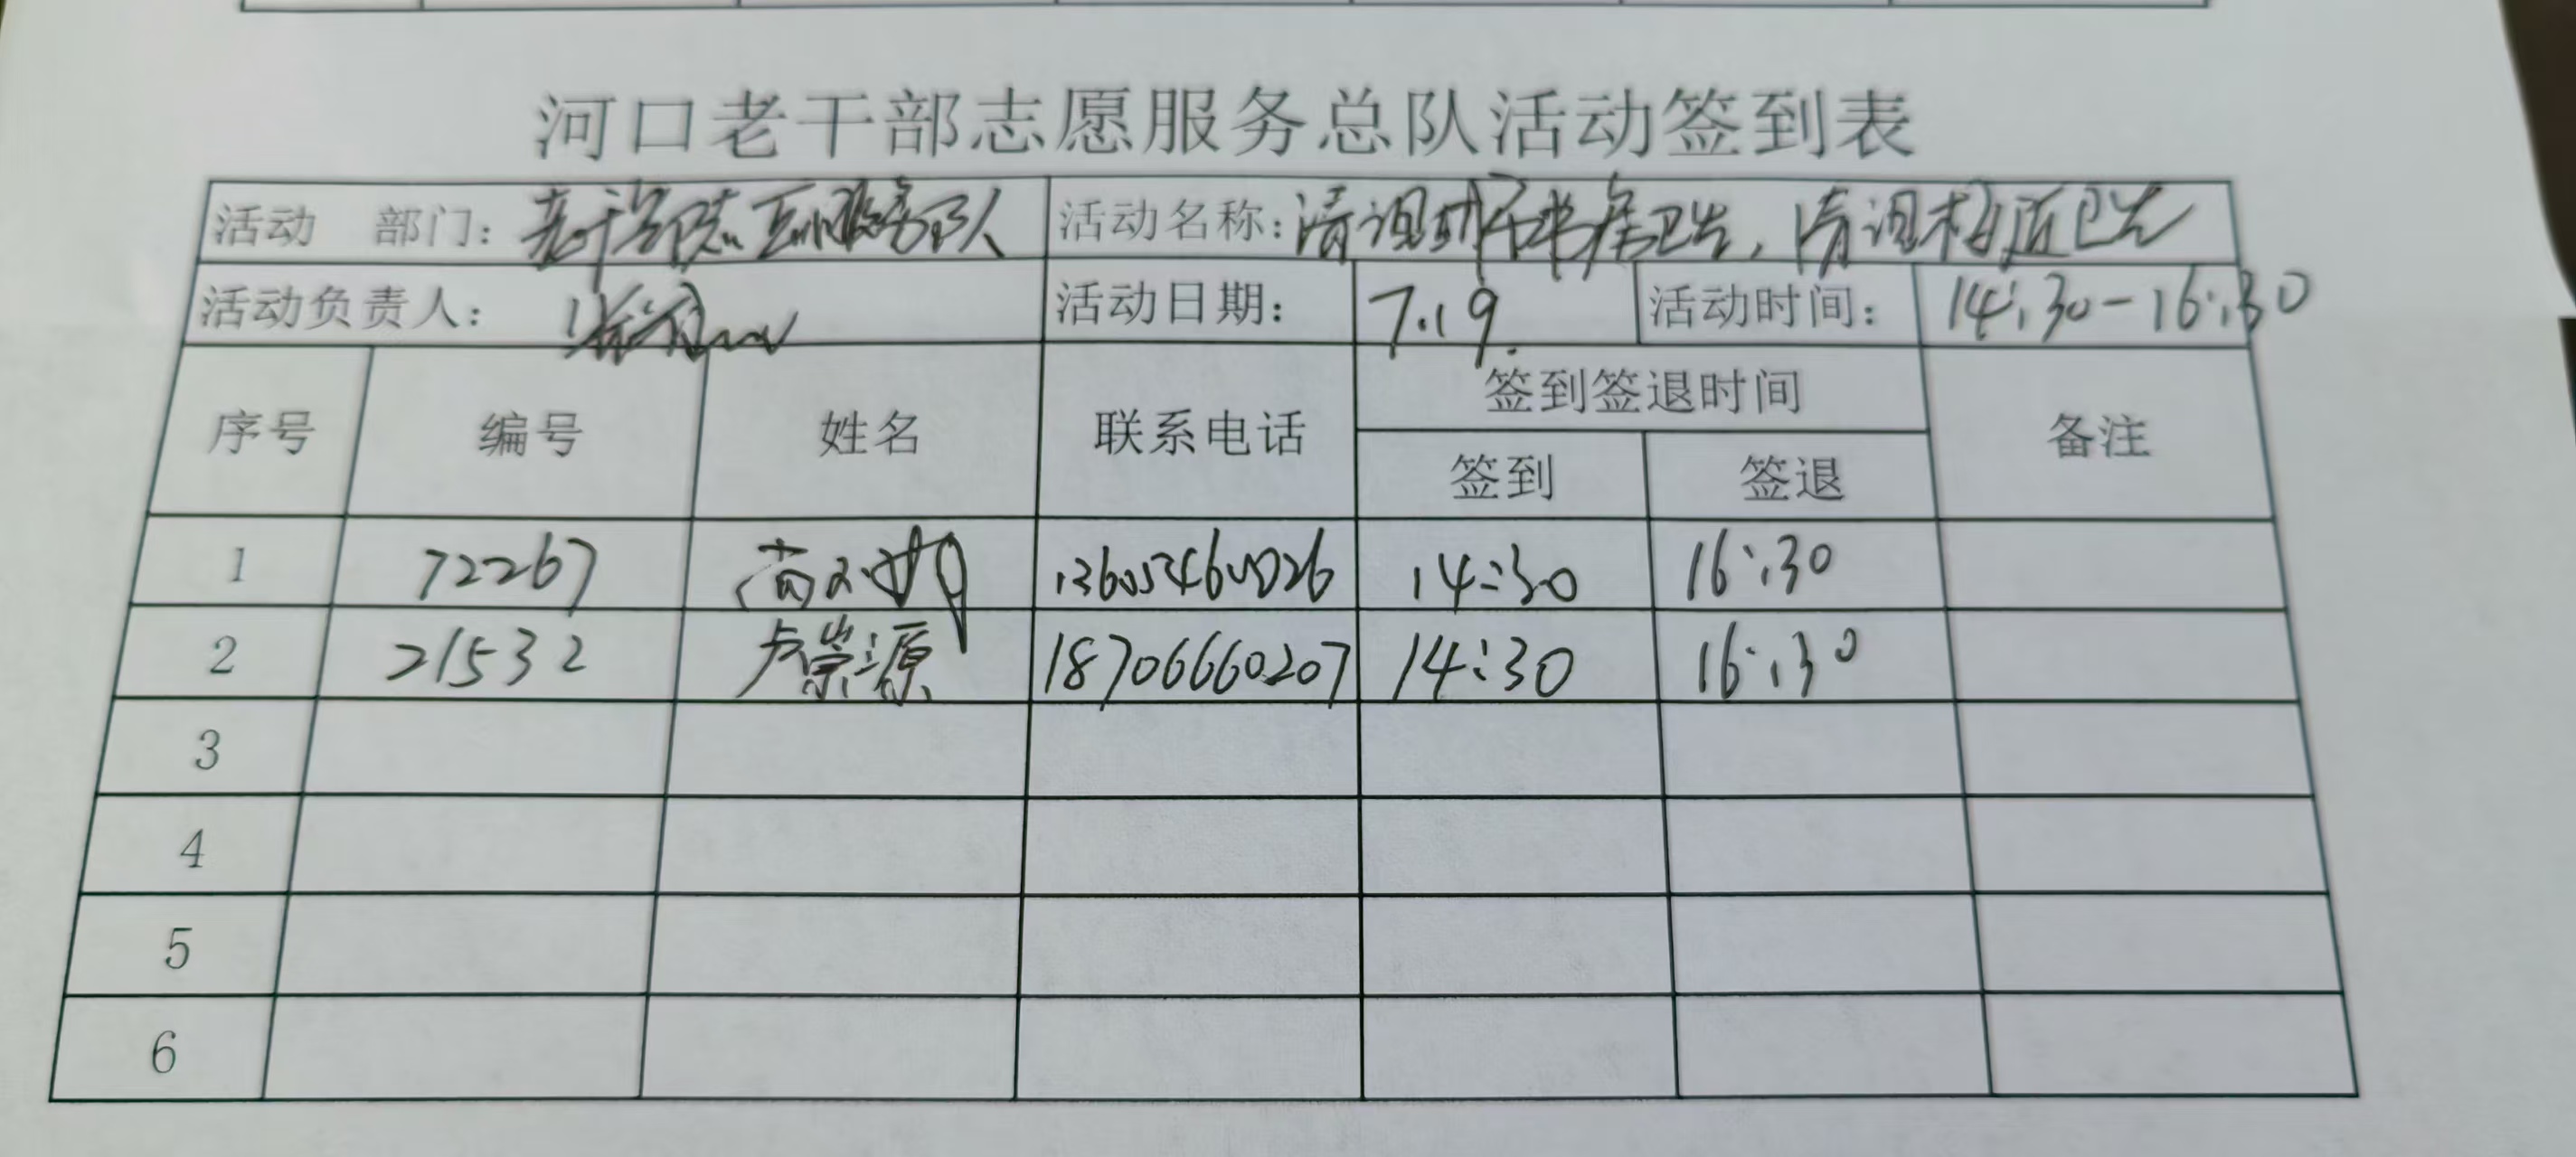 河口老干部志愿服务总队活动签到表
活动 部门： 老干部志愿服务队 活动名称：清理 书屋卫生，清理 卫生
活动负责人： 活动日期： 7.19. 活动时间： 14:30-16:30
序号 编号 姓名 联系电话 签到签退时间 备注
签到 签退
1 72267 13605460026 14:30 16:30
2 21532 卢崇源 18706660207 14:30 16:30
3
4
5
6